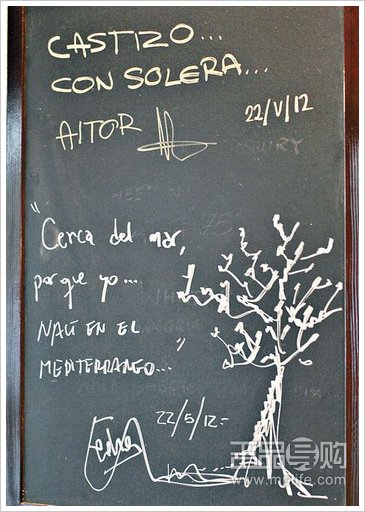 CASTIZO...
CON SOLERA...
AITOR
22/V/12
"Cerca del mar,
porque yo...
NAÚ EN EL
MEDITERRANEO..."
22/5/12=
www.mplife.com